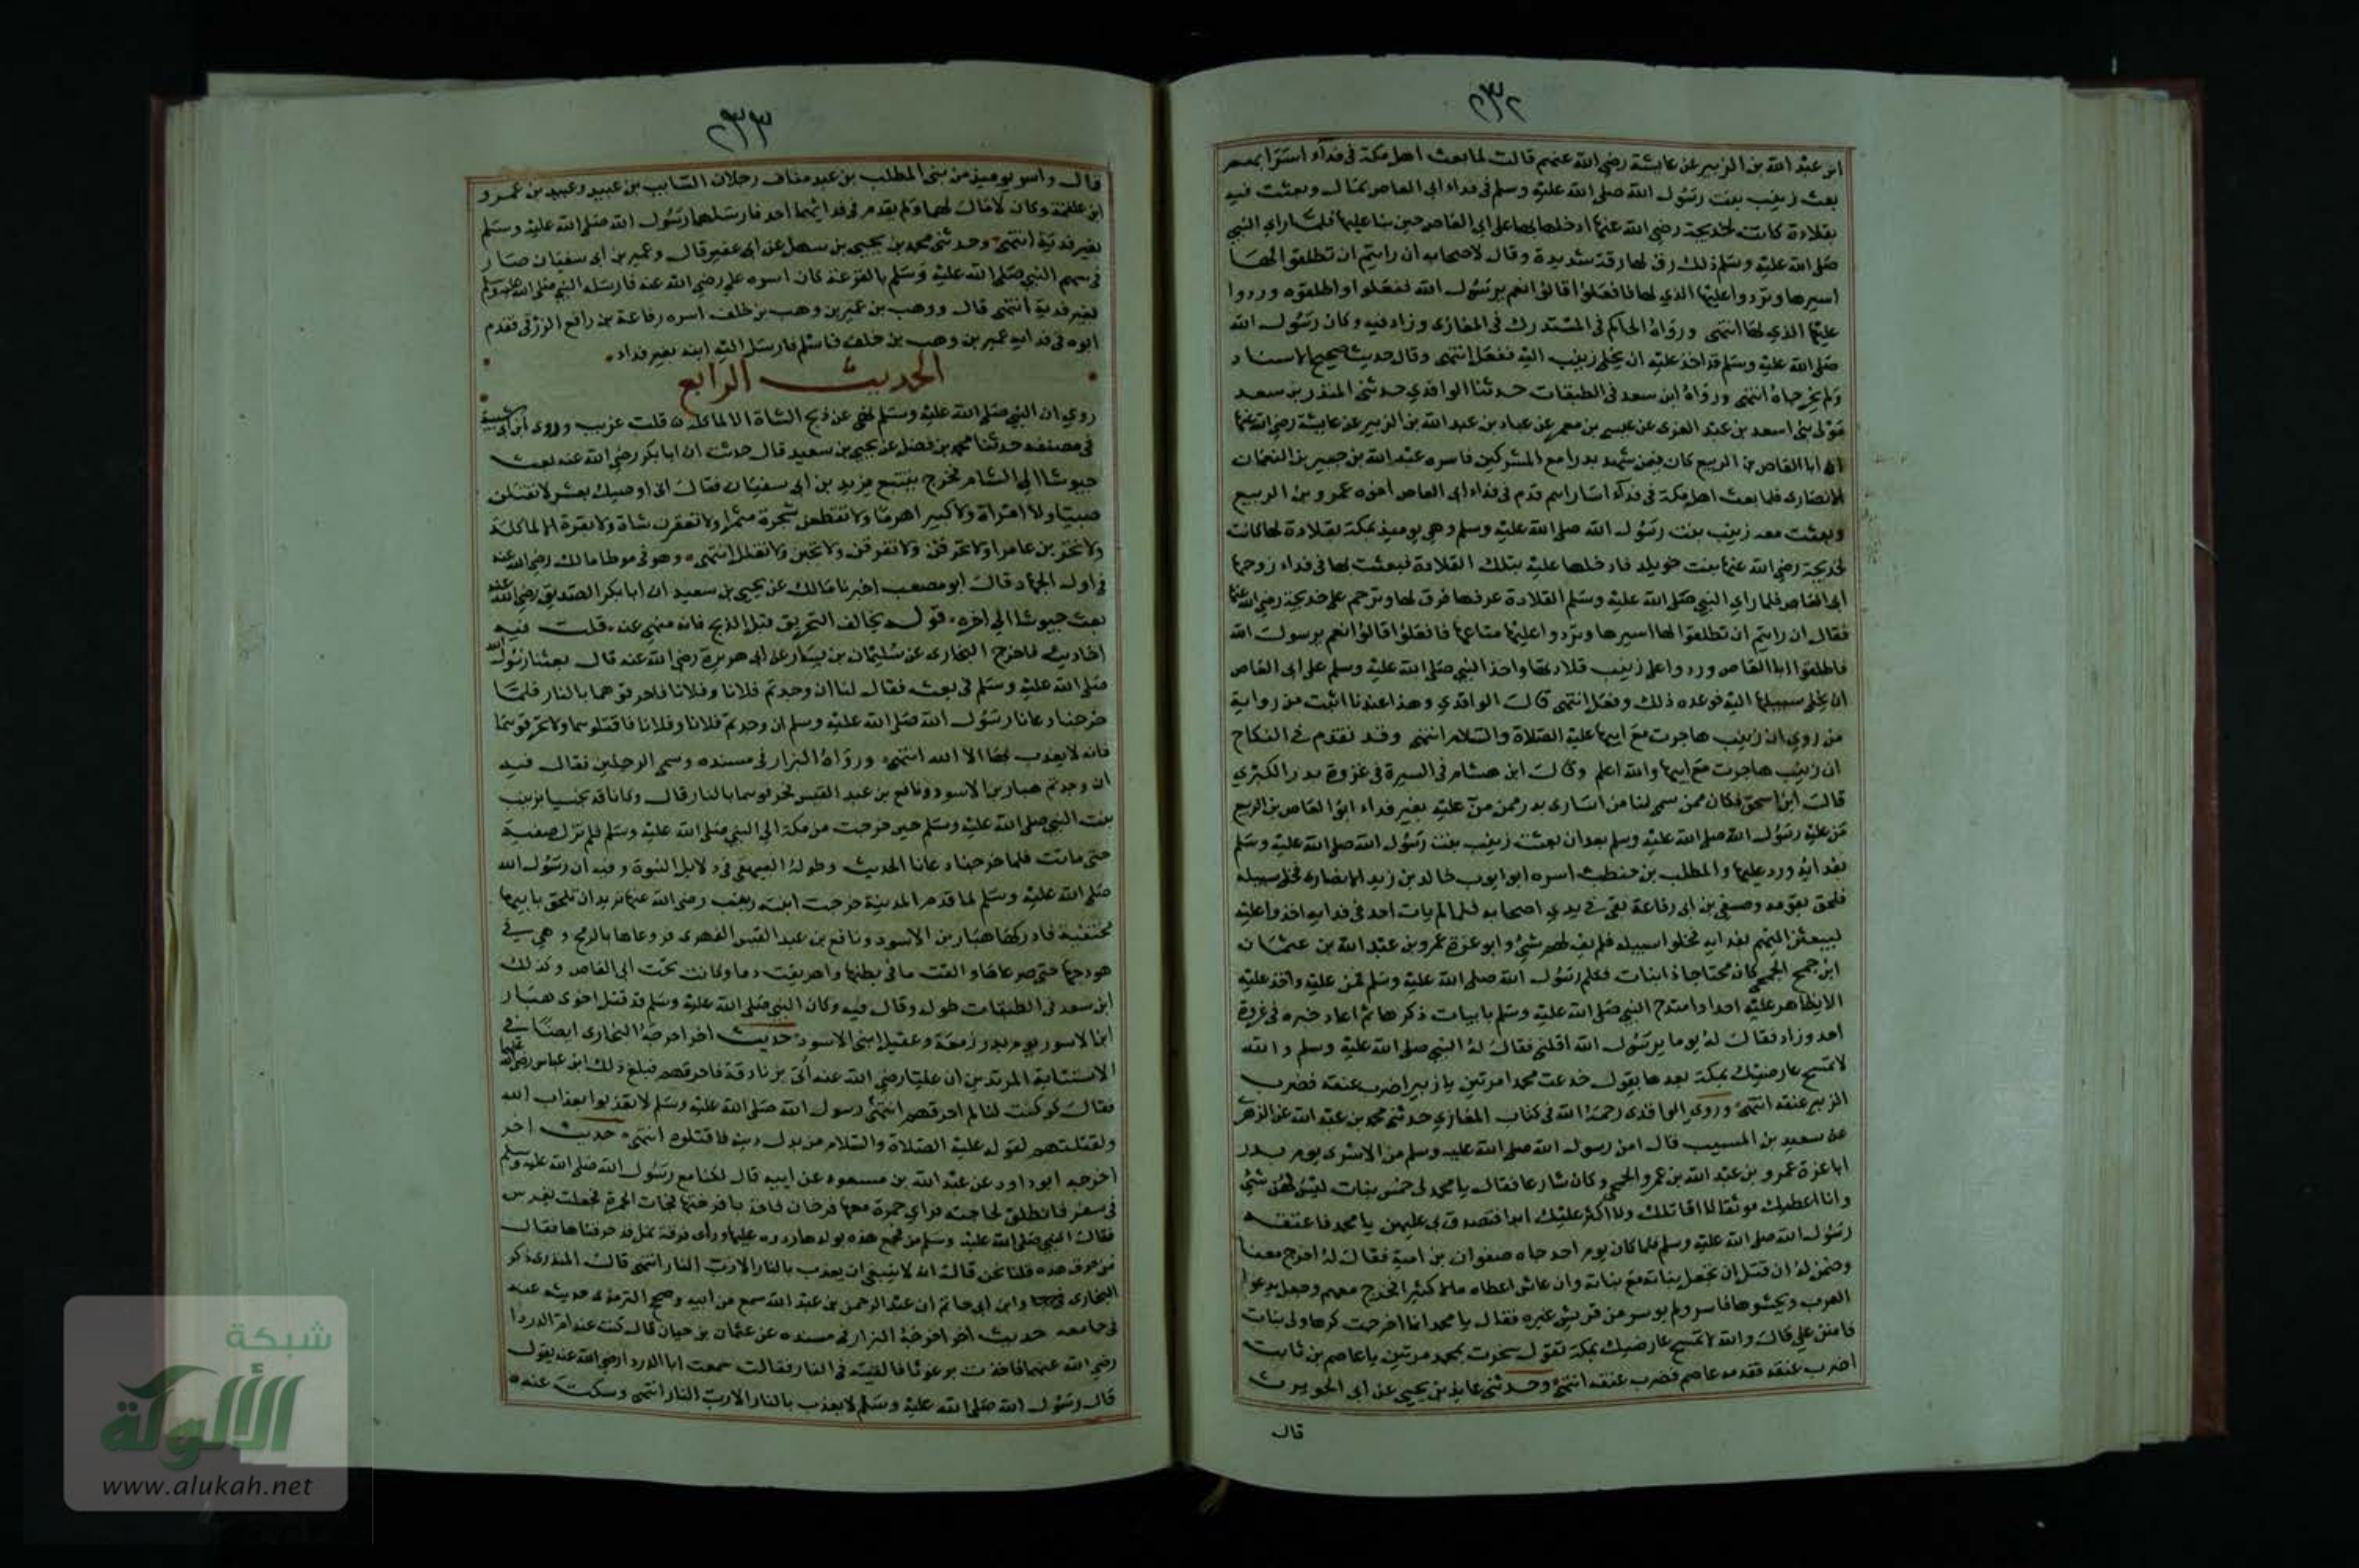 ٢٣٢
ابن عبد الله بن الزبير عن عايشة رضي الله عنهم قالت لما بعث اهل مكة في فدآء اسرابهم
بعث زينب بنت رسول الله صلى الله عليه وسلم في فداء ابي العاص بمال وبعثت فيه
بقلادة كانت لخديجة رضي الله عنها ادخلها بها على ابي العاص حين بنا عليها فلما راي النبي
صلى الله عليه وسلم ذلك رق لها رقة شديدة وقال لاصحابه ان رايتم ان تطلقوا لها
اسيرها وتردوا عليها الذي لها فافعلوا قالوا نعم يرسول الله ففعلوا واطلقوه وردوا
عليها الذي لها انتهى ورواه الحاكم في المستدرك في المغازى وزاد فيه وكان رسول الله
صلى الله عليه وسلم قد اخذ عليه ان يخلي زينب اليه ففعل انتهى وقال حديث صحيح الاسناد
ولم يخرجاه انتهى ورواه ابن سعد في الطبقات حدثنا الواقدي حدثني المنذر بن سعد
مولى بني اسعد بن عبد العزى عن عيسى بن معمر عن عباد بن عبد الله بن الزبير عن عايشة رضي الله عنها
ان ابا العاص بن الربيع كان فيمن شهد بدرا مع المشركين فاسره عبد الله بن جبير بن النعمان
الانصارى فلما بعث اهل مكة في فدآء اساراهم قدم في فداء ابى العاص اخوه عمرو بن الربيع
وبعثت معه زينب بنت رسول الله صلى الله عليه وسلم وهي يوميذ بمكة بقلادة لها كانت
لخديجة رضي الله عنها بنت خويلد فادخلها عليه بتلك القلادة فبعثت بها في فداء زوجها
ابى العاص فلما راي النبي صلى الله عليه وسلم القلادة عرفها فرق لها وترحم على خديجة رضي الله عنها
فقال ان رايتم ان تطلقوا لها اسيرها وتردوا عليها متاعها فافعلوا قالوا نعم يرسول الله
فاطلقوا ابا العاص وردوا على زينب قلادتها واخذ النبي صلى الله عليه وسلم على ابى العاص
ان يخلي سبيلها اليه فوعده ذلك وفعل انتهى قال الواقدي وهذا عندنا اثبت من رواية
من روي ان زينب هاجرت مع ابيها عليه الصلاة والسلام انتهى وقد تقدم في النكاح
ان زينب هاجرت مع ابيها والله اعلم وقال ابن هشام في السيرة في غزوة بدر الكبري
قال ابن اسحق فكان ممن سمى لنا من اسارى بدر ممن من عليه بغير فداء ابو العاص بن الربيع
من عليه رسول الله صلى الله عليه وسلم بعد ان بعثت زينب بنت رسول الله صلى الله عليه وسلم
بفدايه ورد عليها والمطلب بن حنطب اسره ابو ايوب خالد بن زيد الانصارى فخلى سبيله
فلحق بقومه وصيفي بن ابى رفاعة بقى في يدي اصحابه فلما لم يات احد في فدايه اخذوا عليه
ليبعثن اليهم بفدايه فخلوا سبيله فلم يف لهم بشئ وابو عزة عمرو بن عبد الله بن عثمان
ابن جمح الجمحي كان محتاجا ذا بنات فكلم رسول الله صلى الله عليه وسلم فمن عليه واخذ عليه
الا يظاهر عليه احدا وامتدح النبي صلى الله عليه وسلم بابيات ذكرها ثم اعاد خبره في غزوة
احد وزاد فقال له يوما يرسول الله اقلني فقال له النبي صلى الله عليه وسلم والله
لا تمسح عارضيك بمكة بعدها يقول خدعت محمدا مرتين يا زبير اضرب عنقه فضرب
الزبير عنقه انتهى وروي الواقدى رحمه الله في كتاب المغازي حدثني محمد بن عبد الله عن الزهري
عن سعيد بن المسيب قال امن رسول الله صلى الله عليه وسلم من الاسرى يوم بدر
ابا عزة عمرو بن عبد الله بن عمرو الجمحي وكان شاعرا فقال يا محمد لى خمس بنات ليس لهن شئ
وانا اعطيك موثقا لا اقاتلك ولا اكثر عليك ابدا فتصدق بي عليهن يا محمد فاعتقه
رسول الله صلى الله عليه وسلم فلما كان يوم احد جاه صفوان بن امية فقال له اخرج معنا
وضمن له ان قتل ان يجعل بناته مع بناته وان عاش اعطاه مالا كثيرا فخرج معهم وجعل يدعوا
العرب ويحشوها فاسر ولم يوسر من قريش غيره فقال يا محمد انما اخرجت كرها ولى بنات
فامنن علي قال والله لا تمسح عارضيك بمكة تقول سخرت بمحمد مرتين يا عاصم بن ثابت
اضرب عنقه فقدمه عاصم فضرب عنقه انتهى وحدثني عايذ بن يحيى عن ابى الحويرث
قال
٢٣٣
قال واسر يوميذ من بني المطلب بن عبد مناف رجلان السايب بن عبيد وعبيد بن عمرو
ابن علقمة وكان لا مال لهما ولم يقدم في فدائهما احد فارسلهما رسول الله صلى الله عليه وسلم
بغير فدية انتهى وحدثني محمد بن يحيى بن سهل عن ابى عفير قال وعمير بن ابى سفيان صار
في سهم النبي صلى الله عليه وسلم بالقرعة كان اسره علي رضي الله عنه فارسله النبي صلى الله عليه وسلم
بغير فدية انتهى قال ووهب بن عمير بن وهب بن خلف اسره رفاعة بن رافع الزرقي فقدم
ابوه في فدايه عمير بن وهب بن خلف فاسلم فارسل اليه ابنه بغير فداء
الحديث الرابع
روي ان النبي صلى الله عليه وسلم نهى عن ذبح الشاة الا لماكلة قلت غريب وروى ابن ابى شيبة
في مصنفه حدثنا محمد بن فضل عن يحيى بن سعيد قال حدثت ان ابا بكر رضي الله عنه بعث
جيوشا الى الشام فخرج يتبع يزيد بن ابى سفيان فقال انى اوصيك بعشر لا تقتلن
صبيا ولا امراة ولا كبيرا هرما ولا تقطعن شجرة مثمرا ولا تعقرن شاة ولا بقرة الا لماكلة
ولا تخربن عامرا ولا تحرقن ولا تغرقن ولا تجبن ولا تغلل انتهى وهو في موطا مالك رضي الله عنه
في اول الجهاد قال ابو مصعب اخبرنا مالك عن يحيى بن سعيد ان ابا بكر الصديق رضي الله عنه
بعث جيوشا الى اخره قوله بخالف التحريق قبل الذبح فانه منهى عنه قلت فيه
احاديث فاخرج البخارى عن سليمان بن يسار عن ابى هريرة رضي الله عنه قال بعثنا رسول الله
صلى الله عليه وسلم في بعث فقال لنا ان وجدتم فلانا وفلانا فاحرقوهما بالنار فلما
خرجنا دعانا رسول الله صلى الله عليه وسلم ان وجدتم فلانا وفلانا فاقتلوهما ولا تحرقوهما
فانه لا يعذب بها الا الله انتهى ورواه البزار في مسنده وسمى الرجلين فقال فيه
ان وجدتم هبار بن الاسود ونافع بن عبد القيس فحرقوهما بالنار قال وكانا قد نخسا بزينب
بنت النبي صلى الله عليه وسلم حين خرجت من مكة الى النبي صلى الله عليه وسلم فلم تزل ضعيفة
حتى ماتت فلما خرجنا دعانا الحديث وطوله البيهقى في دلايل النبوة وفيه ان رسول الله
صلى الله عليه وسلم لما قدم المدينة خرجت ابنته زينب رضي الله عنها تريد ان تلحق بابيها
مختفية فادركها هبار بن الاسود ونافع بن عبد القيس الفهرى فروعاها بالرمح وهي في
هودجها حتى صرعاها والقت ما في بطنها واهريقت دما وكانت تحت ابى العاص وكذلك
ابن سعد في الطبقات طوله وقال فيه وكان النبي صلى الله عليه وسلم قد قتل اخوى هبار
ابنا الاسود يوم بدر زمعة وعقيل ابنى الاسود حديث اخر اخرجه البخارى ايضا في
الاستتابة المرتدين ان عليا رضي الله عنه أتى بزنادقة فاحرقهم فبلغ ذلك ابن عباس رضي الله عنهما
فقال لو كنت انا لم احرقهم لنهى رسول الله صلى الله عليه وسلم لا تعذبوا بعذاب الله
ولقتلتهم لقوله عليه الصلاة والسلام من بدل دينه فاقتلوه انتهى حديث اخر
اخرجه ابو داود عن عبد الله بن مسعود عن ابيه قال كنا مع رسول الله صلى الله عليه وسلم
في سفر فانطلق لحاجته فراي حمرة معها فرخان فاخذنا فرخيها فجات الحمرة فجعلت تفرش
فقال النبي صلى الله عليه وسلم من فجع هذه بولدها ردوه عليها وراى قرية نمل قد حرقناها فقال
من حرق هذه قلنا نحن قال انه لا ينبغي ان يعذب بالنار الا رب النار انتهى قال المنذرى ذكر
البخارى وابن ابى حاتم ان عبد الرحمن بن عبد الله سمع من ابيه وصحح الترمذى حديثه عنه
في جامعه حديث اخر اخرجه البزار في مسنده عن عثمان بن حيان قال كنت عند ام الدردا
رضي الله عنهما فاخذت برغوثا فالقيته في النار فقالت سمعت ابا الدرداء رضي الله عنه يقول
قال رسول الله صلى الله عليه وسلم لا يعذب بالنار الا رب النار انتهى وسكت عنه
شبكة
الألوكة
www.alukah.net